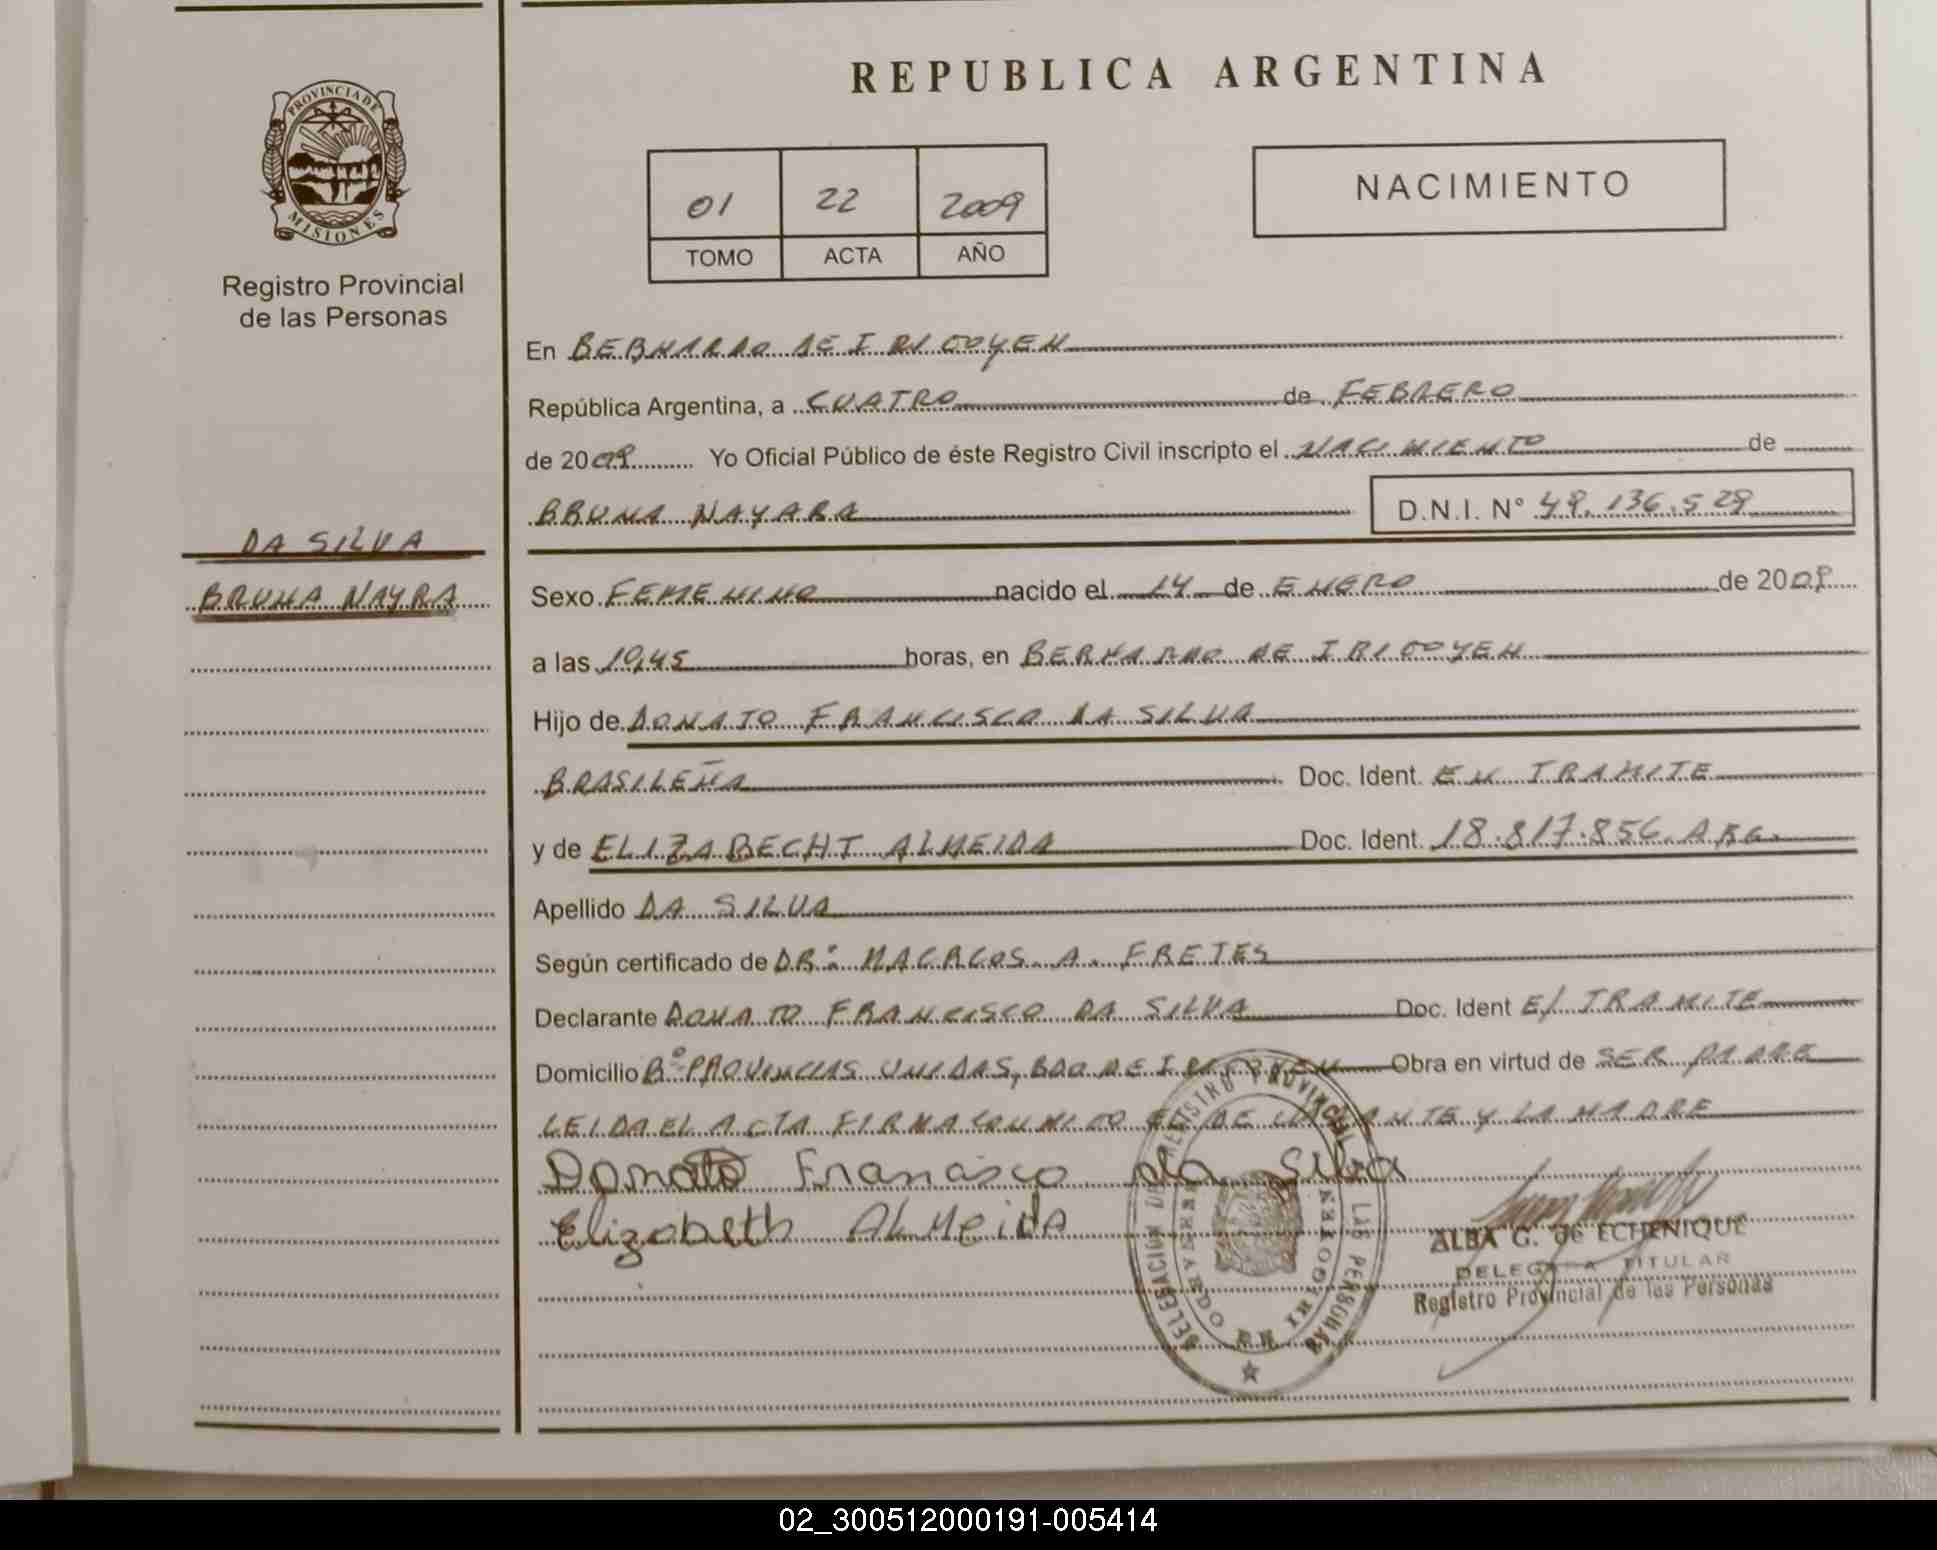 REPUBLICA ARGENTINA
PROVINCIA DE
MISIONES
Registro Provincial
de las Personas
01 22 2009
TOMO ACTA AÑO
NACIMIENTO
En BERNARDO DE IRIGOYEN
República Argentina, a CUATRO de FEBRERO
de 2009 Yo Oficial Público de éste Registro Civil inscripto el NACIMIENTO de
BRUNA NAYARA D.N.I. N° 49.136.529
DA SILVA
BRUNA NAYRA
Sexo FEMENINO nacido el 14 de ENERO de 2009
a las 10,45 horas, en BERNARDO DE IRIGOYEN
Hijo de DONATO FRANCISCO DA SILVA
BRASILEÑA Doc. Ident. EN TRAMITE
y de ELIZABECHT ALMEIDA Doc. Ident. 18.817.856 ARG.
Apellido DA SILVA
Según certificado de DR: MACRCOS A. FRETES
Declarante DONATO FRANCISCO DA SILVA Doc. Ident E/ TRAMITE
Domicilio B° PROVINCIAS UNIDAS, BDO DE IRIGOYEN Obra en virtud de SER PADRE
LEIDA EL ACTA FIRMA CONMIGO EL DECLARANTE Y LA MADRE
Donato Francisco da Silva
Elizabeth ALMeidA
DELEGACIÓN DE REGISTRO PROVINCIAL LAS PERSONAS
IRIGOYEN
ALBA G. de ECHENIQUE
DELEGADA TITULAR
Registro Provincial de las Personas
02_300512000191-005414